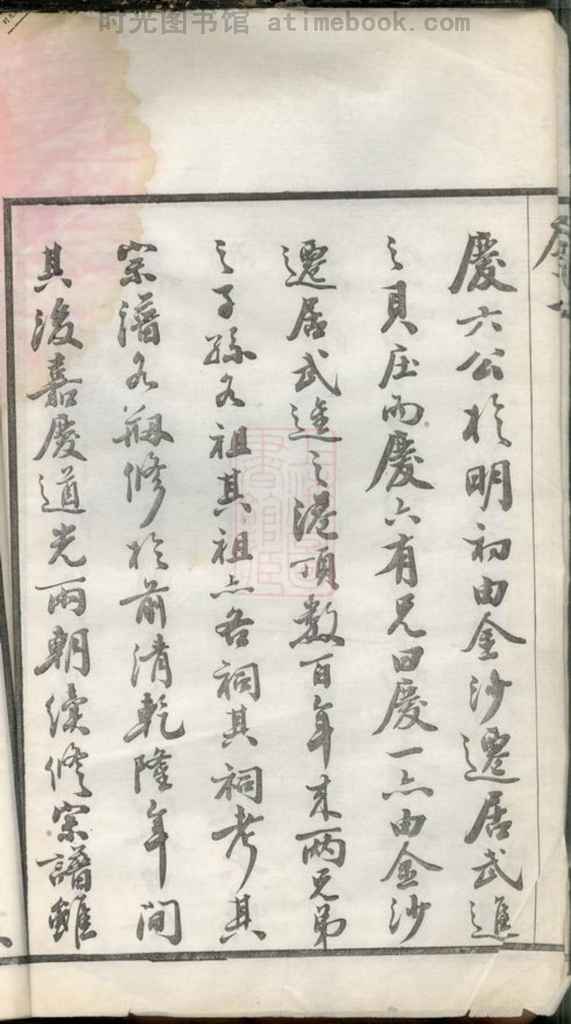 时光图书馆 atimebook.com
慶六公於明初由金沙遷居武進
之貝庄而慶六有兄曰慶一亦由金沙
遷居武進之港頂數百年來兩兄弟
之子孫各祖其祖亦各祠其祠考其
宗譜各纂修於前清乾隆年間
其後嘉慶道光兩朝續修宗譜雖